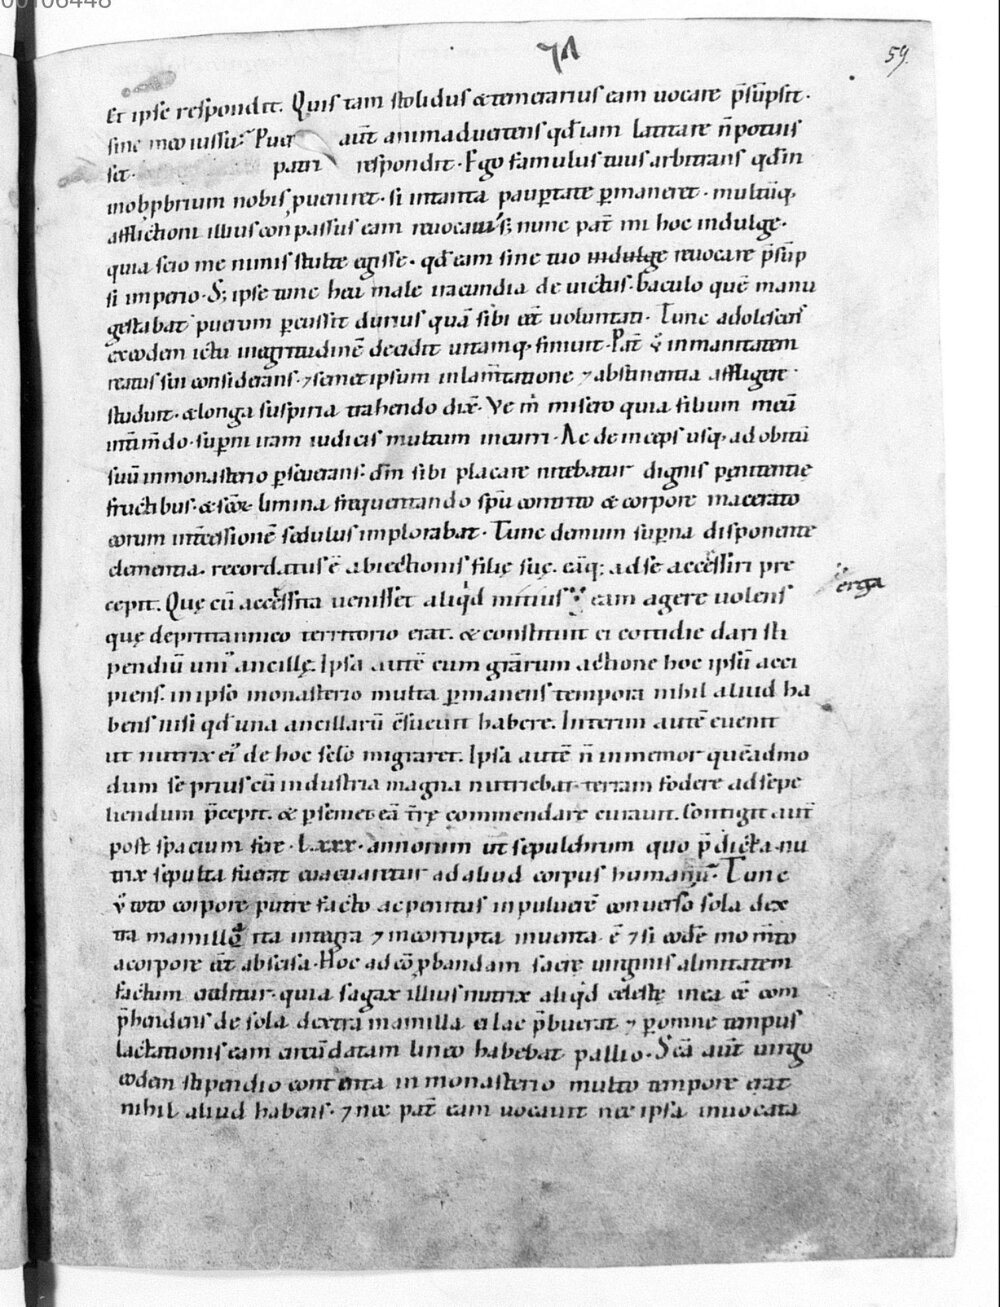 59.
Et ipse respondit. Quis tam stolidus & temerarius eam uocare p̄sūpsit.
sine meo iussu. Puer aūt animaduertens qd̄ iam latitare n̄ potuis
set. patri respondit. Ego famulus tuus arbitrans qd̄ in
inobp̱brium nobis ꝓueniret. si in tanta pauꝑtate ꝑmaneret. multūq;
afflictioni illius conpassus eam reuocaui. s; nunc pat̄ mi hoc indulge.
quia scio me nimis stulte egisse. qd̄ eam sine tuo indulge reuocare p̄sūp
si imperio. S; ipse tunc heu male iracundia deuictus. baculo quē manu
gestabat puerum ꝑcussit durius quā sibi eēt uoluntati. Tunc adolescens
ex eodem ictu in egritudinē decidit uitamq; finiuit. Pat̄ ỽ inmanitatem
reatus sui considerans. ⁊ semet ipsum in lam̄tatione ⁊ abstinentia affligere
studuit. & longa suspiria trahendo dix̄. Ve m̄ misero quia filium meū
intim̄do. suꝑni iram iudicis multum incurri. Ac deinceps usq; ad obitū
suū in monasterio ꝑseuerans. dn̄m sibi placare nitebatur dignis pęnitentię
fructibus. & scōꝝ limina frequentando spū contrito & corpore macerato
eorum int̄cessionē sedulus implorabat. Tunc demum suꝑna disponente
clementia. recordatus ē abiectionis filię suę. eāq; ad se accessiri pre
cepit. Quę cū accessita uenisset aliqd̄ mitius eam agere uolens
erga
quę de prittannico territorio erat. & constituit ei cottidie dari sti
pendiū uni' ancillę. Ipsa autē cum gr̄arum actione hoc ipsū acci
piens. in ipso monasterio multa ꝑmanens tempora nihil aliud ha
bens nisi qd̄ una ancillarū c̄sueuit habere. Interim autē euenit
ut nutrix ei' de hoc sclo migraret. Ipsa autē n̄ inmemor quēadmo
dum se prius cū industria magna nutriebat. terram fodere ad sepe
liendum p̄cepit. & ꝑ semet eā t̄rę commendare curauit. Contigit aūt
post spacium fere. Lxxx. annorum ut sepulchrum quo p̄dicta nu
trix sepulta fuerat euacuaretur ad aliud corpus humanū. Tunc
ỽ toto corpore putrefacto ac penitus in puluerē conuerso sola dex
tra mamilla ita integra ⁊ incorrupta inuenta. ē ⁊ si eodē mom̄to
a corpore eēt abscisa. Hoc ad cōꝓbandam sacrę uirginis almitatem
factum creditur. quia sagax illius nutrix aliqd̄ celeste in ea eē com
p̄hendens de sola dextra mamilla ei lac p̄buerat ⁊ ꝑ omne tempus
lactationis eam circūdatam lineo habebat pallio. Scā aūt uirgo
eodem stipendio contenta in monasterio multo tempore erat
nihil aliud habens. ⁊ nec pat̄ eam uocauit nec ipsa inuocata